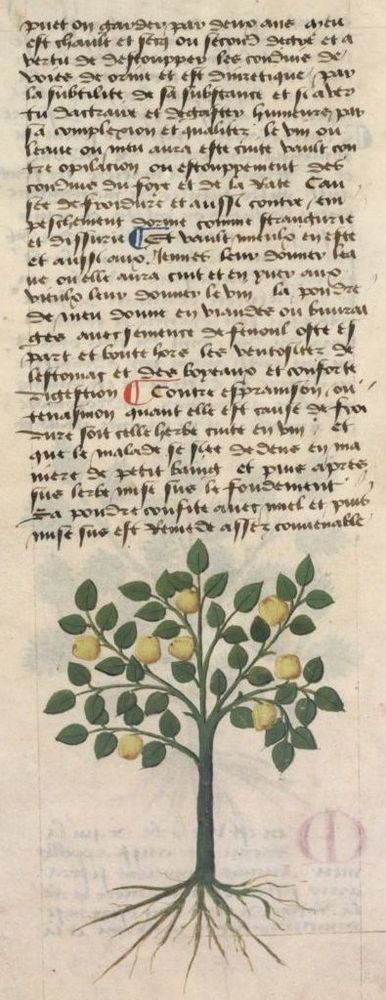 puet on garder par deux ans Meu
est chault et secq ou second degre et a
vertu de destoupper les conduis de
voies de orine et est diuretique par
la subtilite de sa substance et si a ver
tu dactraire et degaster humeurs par
sa complexion et qualitez le vin ou
leaue ou meu aura este cuite vault con
tre opilacion ou estouppement des
conduis du foye et de la Rate Cau
see de froidure et aussi contre em
peschement dorine comme strangurie
et dissurie Et vault mieulx en este
et aussi aux Jennes leur donner lea
ue ou elle aura cuit et en yuer aux
vieulx leur donner le vin la pouldre
de meu donne en viandes ou buurai
ges auec semence de fenoul oste et
part et boute hors les ventositez de
lestomac et des boyeaux et conforte
digestion Contre espraincon ou
tenasmon quant elle est cause de froi
dure soit celle herbe cuite en vin et
que le malade se siee dedens en ma
niere de petit baing et puis apres
sus lerbe mise sus le fondement
La pouldre confite auec miel et puis
mise sus est Remede assez conuenable